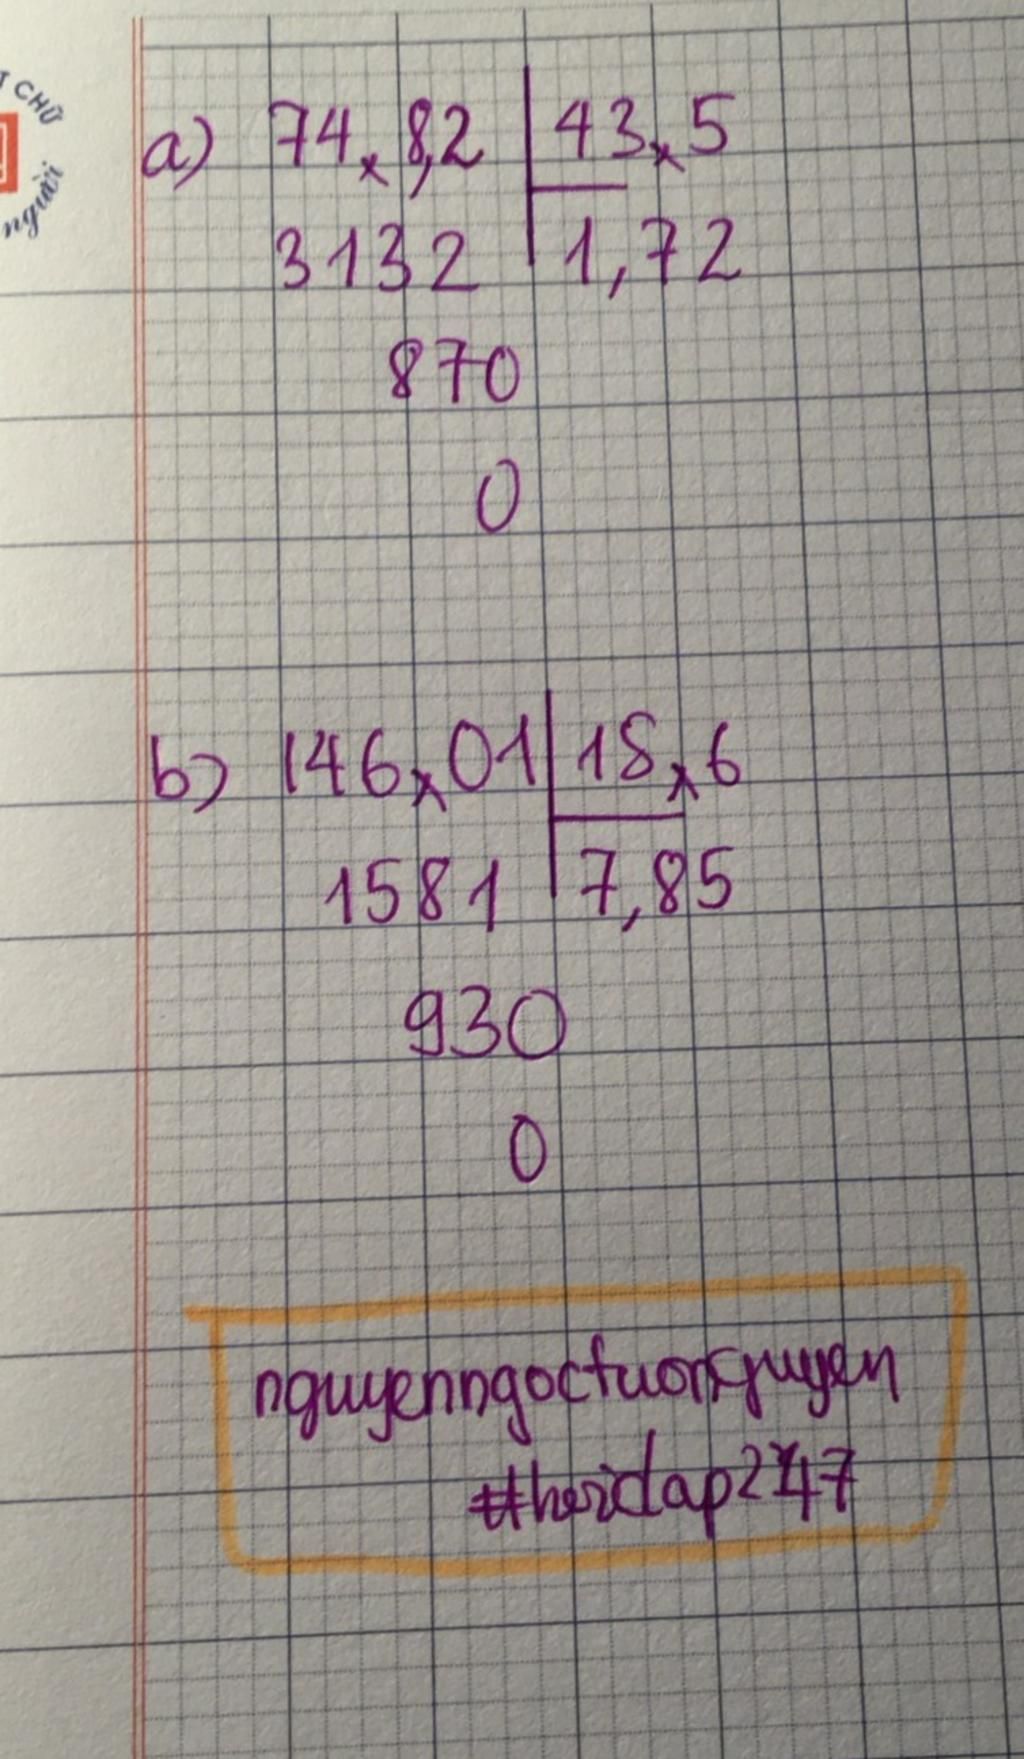 T CHỮ
người
a) 74,8,2 43,5
3132 1,72
870
0
b) 146,01 18,6
1581 7,85
930
0
nguyenngoctuongnuyen
#hoidap247